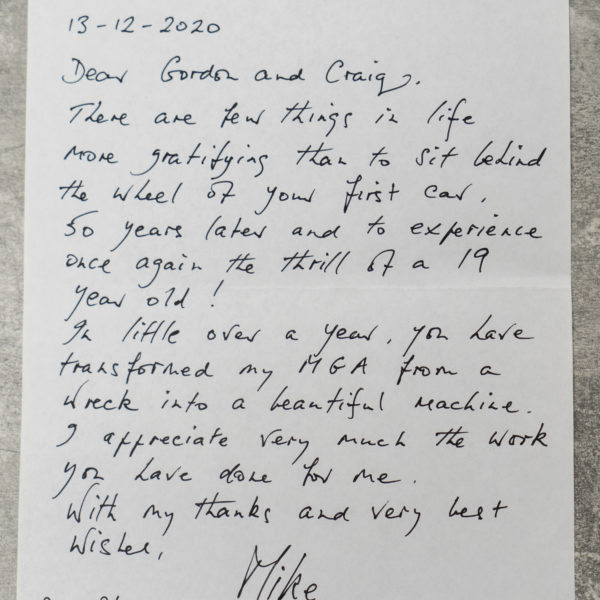 13-12-2020
Dear Gordon and Craig,
There are few things in life
more gratifying than to sit behind
the wheel of your first car,
50 years later and to experience
once again the thrill of a 19
year old!
In little over a year, you have
transformed my MGA from a
wreck into a beautiful machine.
I appreciate very much the work
you have done for me.
With my thanks and very best
wishes,
Mike